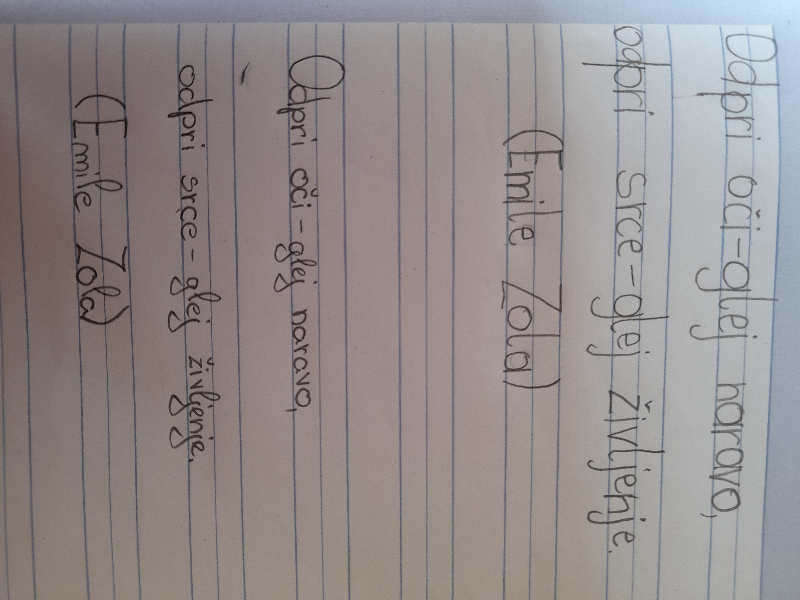 Odpri oči-glej naravo,
odpri srce-glej življenje.
(Emile Zola)
Odpri oči-glej naravo,
odpri srce-glej življenje.
(Emile Zola)